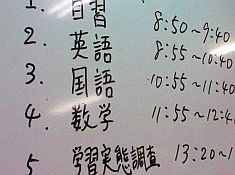 1. 自習 8:50~9:40
2. 英語 8:55~10:40
3. 国語 10:55~11:4
4. 数学 11:55~12:4
5 学習実態調査 13:20~1